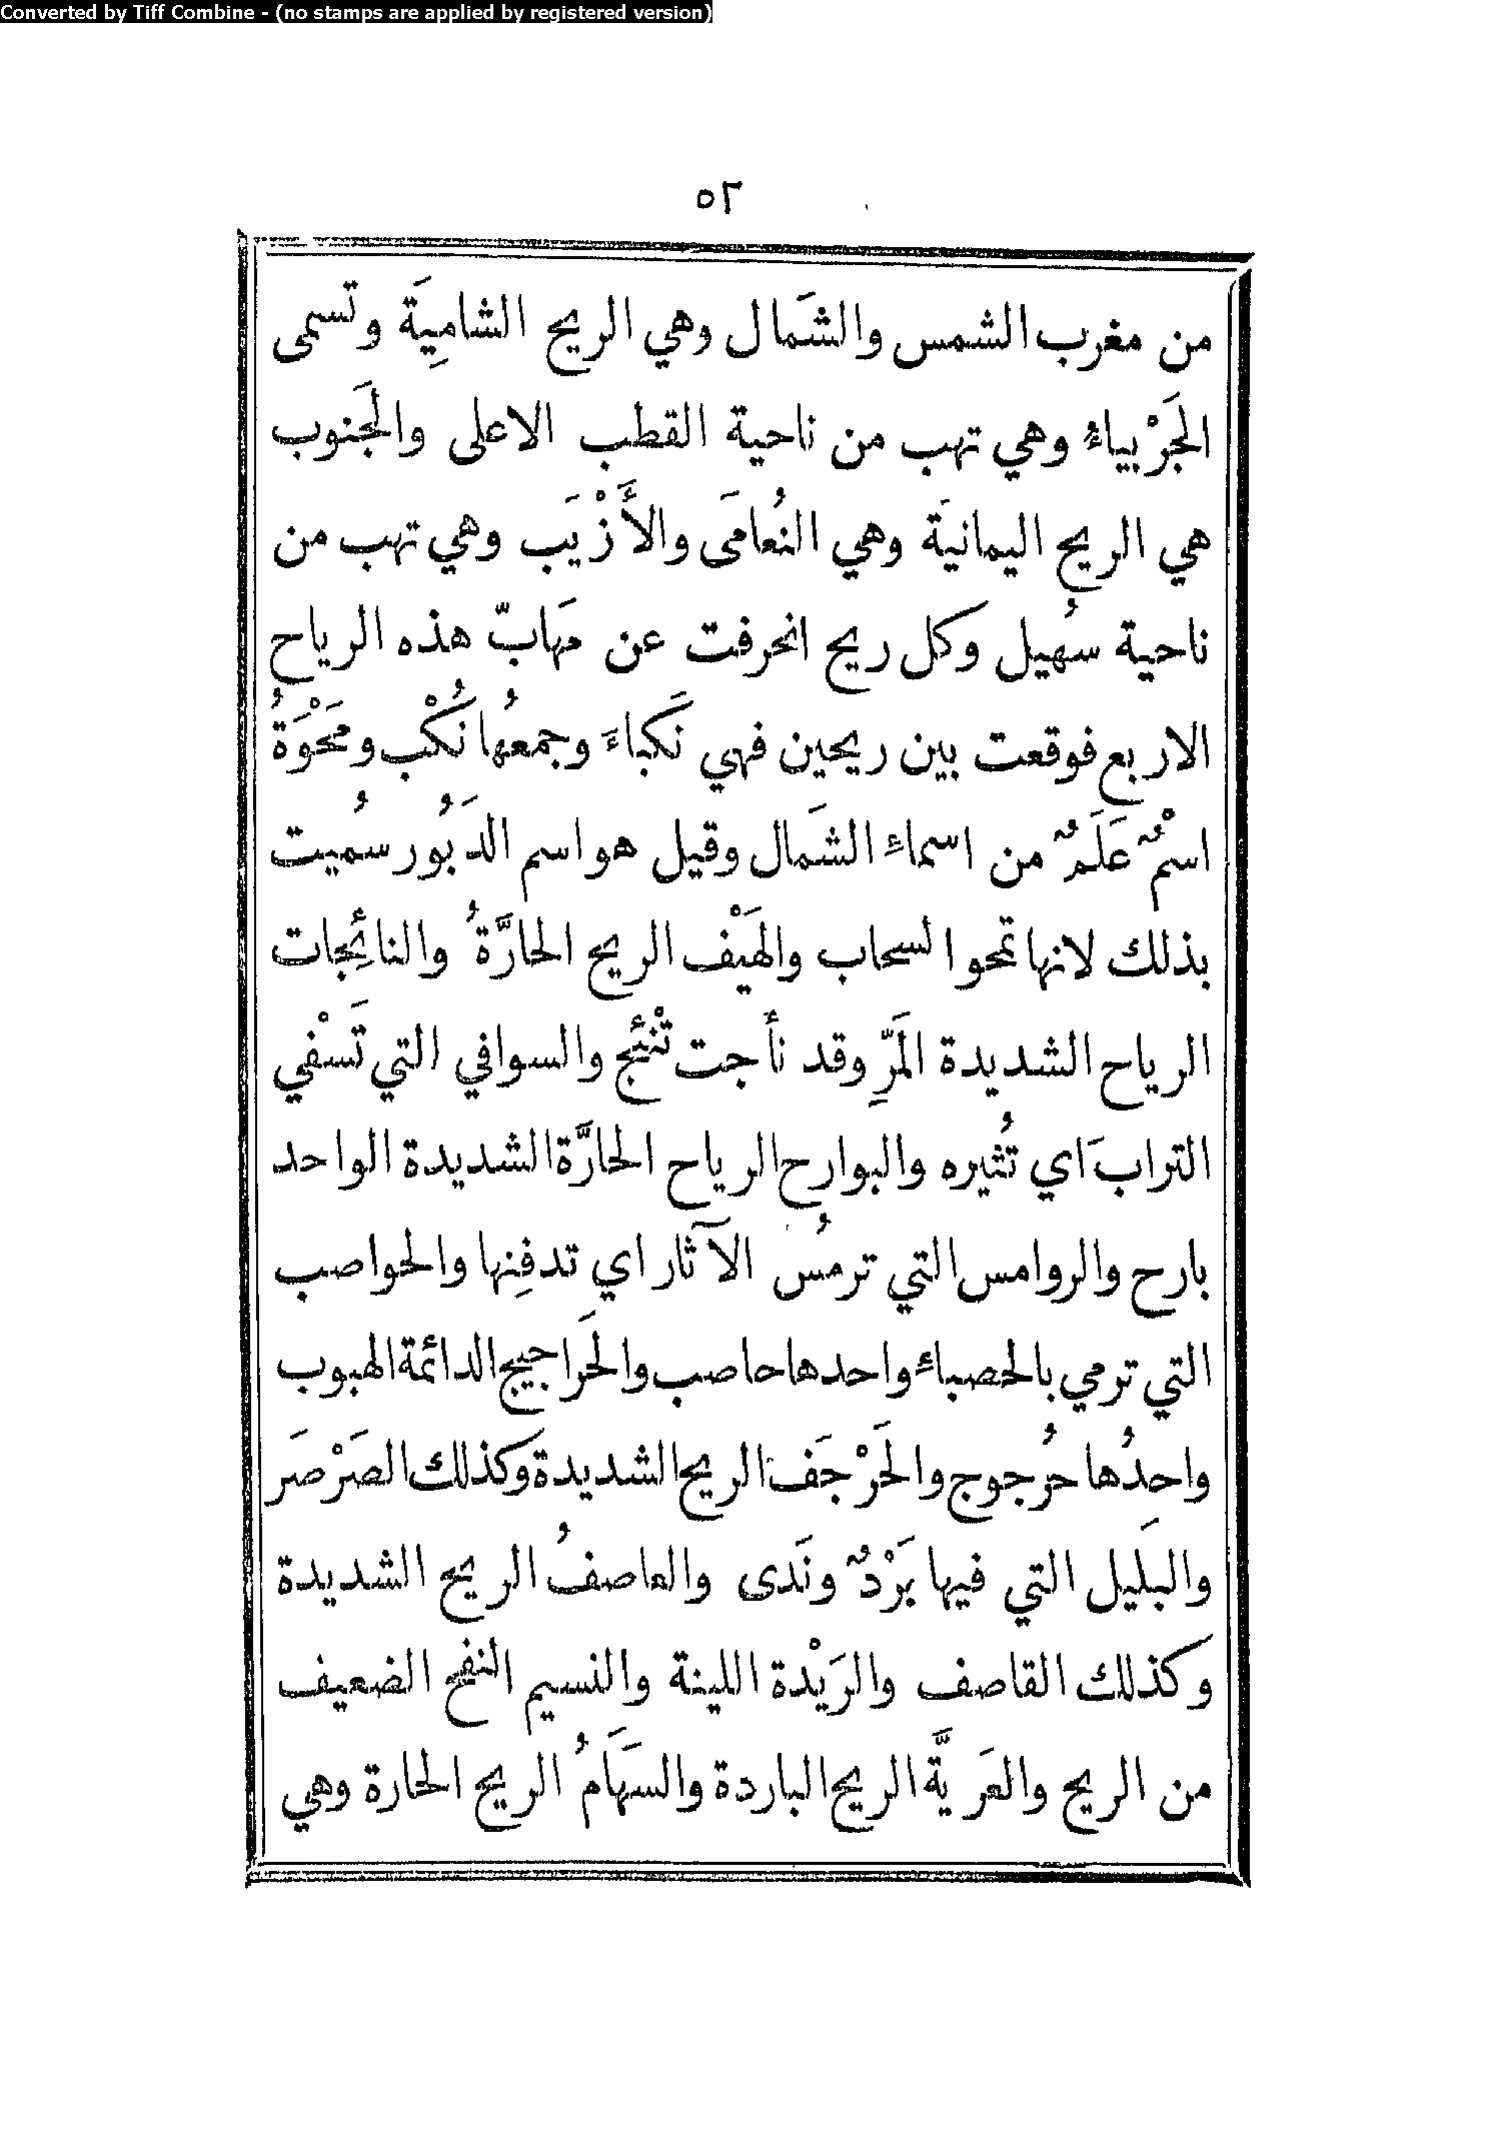 Converted by Tiff Combine - (no stamps are applied by registered version)
٥٢
من مغرب الشمس والشَمال وهي الريح الشامِيَة وتسمى
الجَرْبياءُ وهي تهب من ناحية القطب الاعلى والجَنوب
هي الريح اليمانيَة وهي النُعامَى والأَزْيَب وهي تهب من
ناحية سُهيل وكل ريح انحرفت عن مَهَابّ هذه الرياح
الاربع فوقعت بين ريحين فهي نَكباءَ وجمعُها نُكْبُ ومَحْوَةُ
اسْمٌ عَلَمٌ من اسماءِ الشَمال وقيل هو اسم الدَبُور سُميت
بذلك لانها تمحو السحاب والهَيْف الريح الحارَّةُ والنائِجات
الرياح الشديدة المَرِّ وقد نأَجت تْنئج والسوافي التي تَسْفي
التراب اي تُثيره والبوارح الرياح الحارَّة الشديدة الواحد
بارح والروامس التي ترمُس الآثار اي تدفِنها والحواصب
التي ترمي بالحصباءِ واحدها حاصب والحَراجيج الدائمة الهبوب
واحِدُها حُرجوج والحَرْجَف الريح الشديدة وكذلك الصَرْصَر
والبَلِيل التي فيها بَرْدٌ ونَدى والعاصفُ الريح الشديدة
وكذلك القاصف والرَيْدة اللينة والنسيم النفح الضعيف
من الريح والعَرِيَّة الريح الباردة والسَهَامُ الريح الحارة وهي